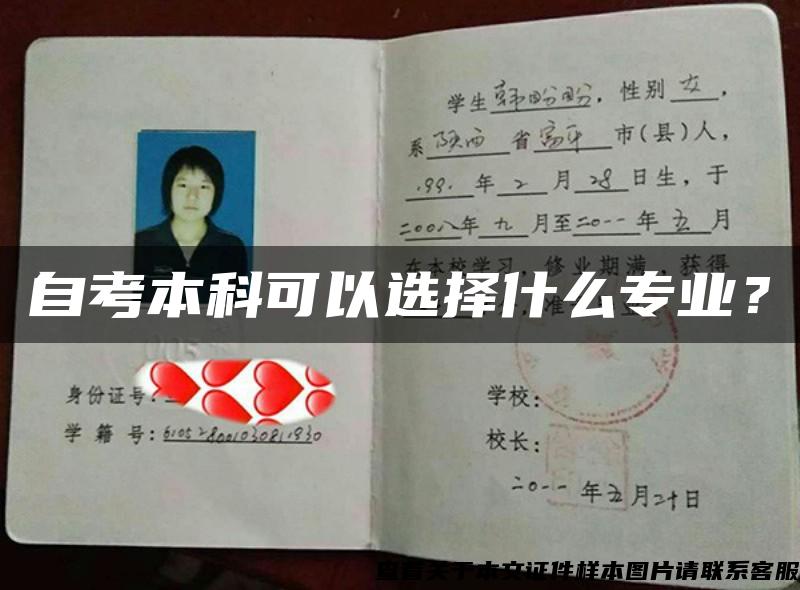 学生韩盼盼，性别女，
系陕西省富平市(县)人，
1991年2月28日生，于
二00八年九月至二0一一年五月
在本校学习，修业期满，获得
自考本科可以选择什么专业？
身份证号：
学籍号：610528001030811930
学校：
校长：
二0一一年五月二十日
查看关于本文证件样本图片请联系客服